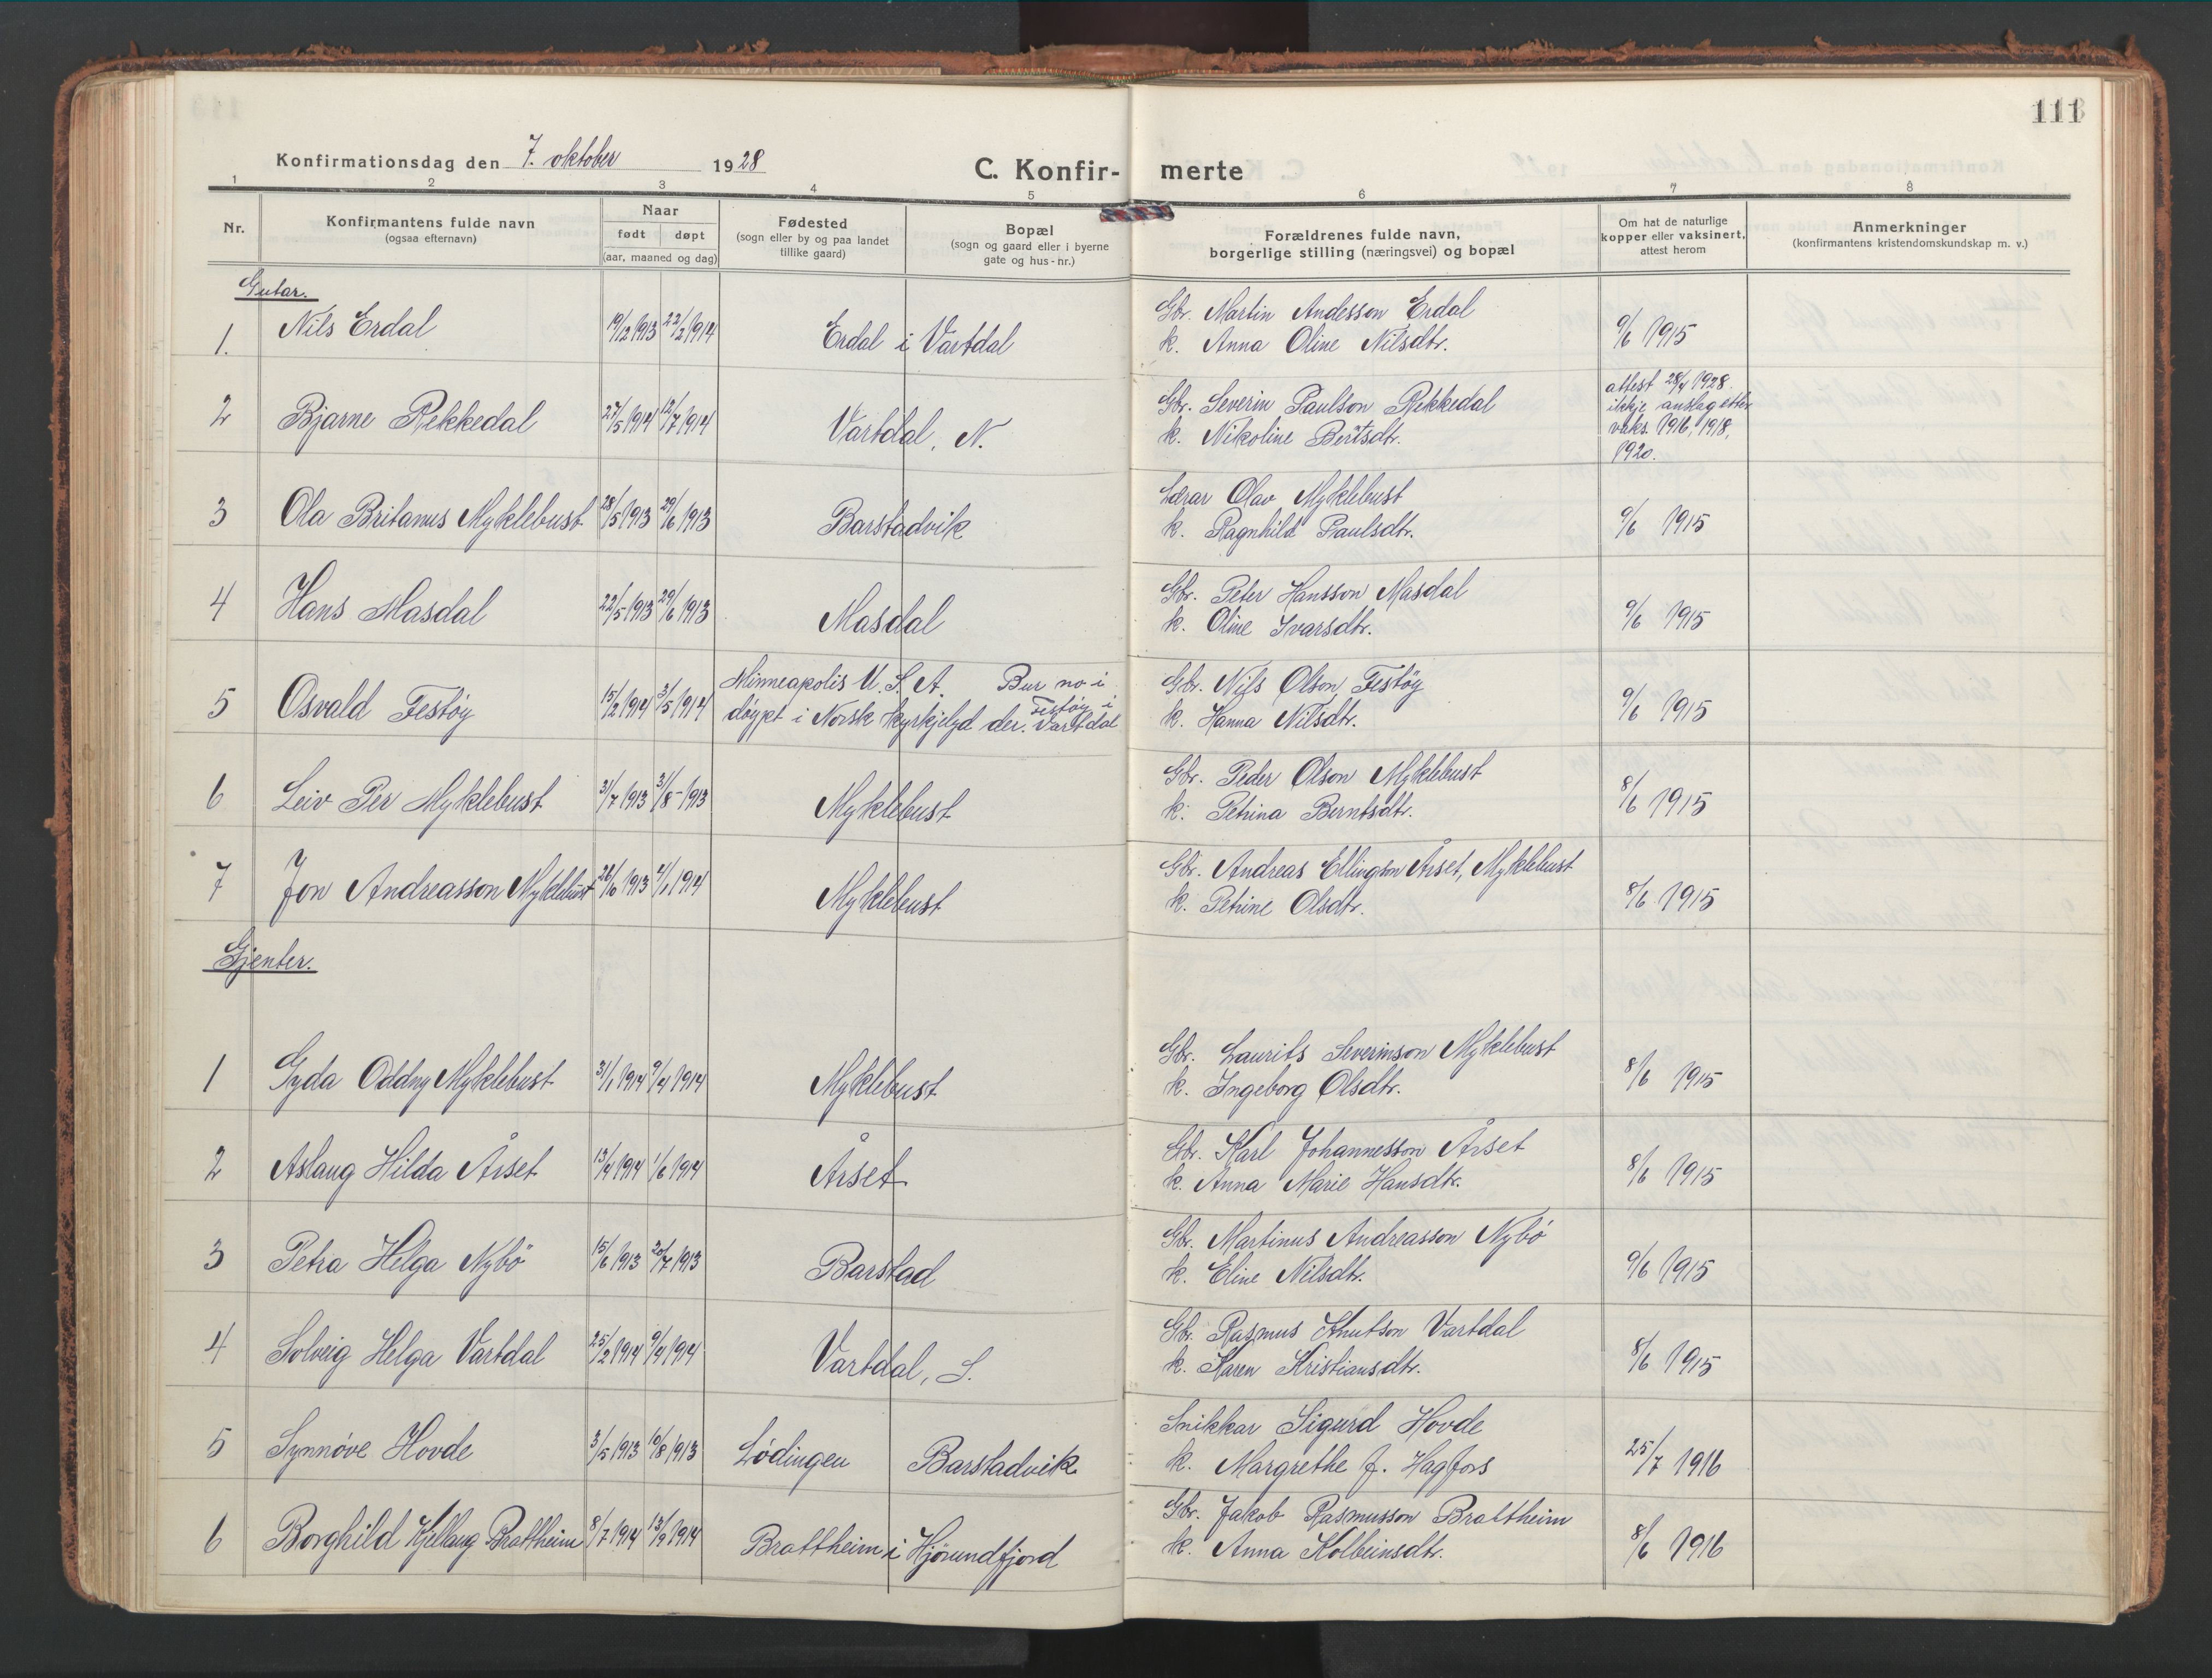 111
Konfirmationsdag den 7. oktober 1928
C. Konfir- merte
1 2 3 4 5 6 7 8
Nr. Konfirmantens fulde navn (ogsaa efternavn) Naar født døpt (aar, maaned og dag) Fødested (sogn eller by og paa landet tillike gaard) Bopæl (sogn og gaard eller i byerne gate og hus-nr.) Forældrenes fulde navn, borgerlige stilling (næringsvei) og bopæl Om hat de naturlige kopper eller vaksinert, attest herom Anmerkninger (konfirmantens kristendomskundskap m. v.)
Gutar.
1. Nils Erdal 19/12 1913 22/2 1914 Erdal i Vartdal Gbr. Martin Andesson Erdal 9/6 1915
k. Anna Oline Nilsdtr.
2 Bjarne Rekkedal 27/5 1914 12/7 1914 Vartdal, N. Gbr. Severin Paulson Rekkedal attest 28/4 1928
k. Nikoline Bertsdtr. ikkje anslag etter
vaks. 1916, 1918,
1920.
3 Ola Britanus Myklebust 28/5 1913 29/6 1913 Barstadvik Lærar Olav Myklebust 9/6 1915
k. Ragnhild Paulsdtr.
4 Hans Masdal 22/5 1913 29/6 1913 Masdal Gbr. Peter Hansson Masdal 9/6 1915
k. Oline Ivarsdtr.
5 Osvald Festøy 15/2 1914 3/5 1914 Minneapolis U.S.A. Bur no i Gbr. Nils Olson Festøy 9/6 1915
døypt i Norsk kyrkjelyd der. Festøy i Vartdal k. Hanna Nilsdtr.
6 Leiv Per Myklebust 3/7 1913 31/8 1913 Myklebust Gbr. Peder Olson Myklebust 8/6 1915
k. Petrina Berntsdtr.
7 Jon Andreasson Myklebust 26/10 1913 4/1 1914 Myklebust Gbr. Andreas Ellingson Årset, Myklebust 8/6 1915
k. Petrine Olsdtr.
Gjenter.
1 Gyda Oddny Myklebust 31/1 1914 9/4 1914 Myklebust Gbr. Laurits Severinson Myklebust 8/6 1915
k. Ingeborg Olsdtr.
2 Aslaug Hilda Årset 13/4 1914 1/6 1914 Årset Gbr. Karl Johannesson Årset 8/6 1915
k. Anna Marie Hansdtr.
3 Petra Helga Nybö 15/6 1913 20/7 1913 Barstad Gbr. Martinus Andreasson Nybö 9/6 1915
k. Eline Nilsdtr.
4 Solveig Helga Vartdal 25/2 1914 9/4 1914 Vartdal, S. Gbr. Rasmus Knutson Vartdal 8/6 1915
k. Karen Kristiansdtr.
5 Synnöve Hovde 3/5 1913 10/8 1913 Lödingen Barstadvik Snikkar Sigurd Hovde 25/7 1916
k. Margrethe J. Hagfors
6 Borghild Kjellaug Brattheim 8/7 1914 13/9 1914 Brattheim i Hjörundfjord Gbr. Jakob Rasmusson Brattheim 8/6 1916
k. Anna Kolbeinsdtr.